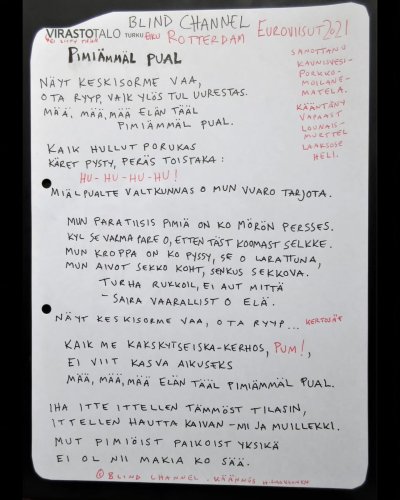 BLIND CHANNEL
VIRASTOTALO TURKU ÅBO ROTTERDAM EUROVIISUT 2021
EI LIITY TÄHÄN
PIMIÄMMÄL PUAL
SANOTTANO
KAUNUVESI-
PORKKO-
MOILANE-
MATELA.
KÄÄNTÄNY
VAPAAST
LOUNAIS-
MURTTEL
LAAKSOSE
HELI.
NÄYT KESKISORME VAA,
OTA RYYP, VAIK YLÖS TUL UURESTAS.
MÄÄ, MÄÄ, MÄÄ ELÄN TÄÄL
PIMIÄMMÄL PUAL.
KAIK HULLUT PORUKAS
KÄRET PYSTY, PERÄS TOISTAKA:
HU-HU-HU-HU!
MIÄLPUALTE VALTKUNNAS O MUN VUARO TARJOTA.
MUN PARATIISIS PIMIÄ ON KO MÖRÖN PERSSES.
KYL SE VARMA PARE O, ETTEN TÄST KOOMAST SELKKE.
MUN KROPPA ON KO PYSSY, SE O LARATTUNA,
MUN AIVOT SEKKO KOHT, SENKUS SEKKOVA.
TURHA RUKKOIL, EI AUT MITTÄ
- SAIRA VAARALLIST O ELÄ.
NÄYT KESKISORME VAA, OTA RYYP... KERTOSÄT
KAIK ME KAKSKYTSEISKA-KERHOS, PUM!,
EI VIIT KASVA AIKUSEKS
MÄÄ, MÄÄ, MÄÄ ELÄN TÄÄL PIMIÄMMÄL PUAL.
IHA ITTE ITTELLEN TÄMMÖST TILASIN,
ITTELLEN HAUTTA KAIVAN - MII JA MUILLEKKI.
MUT PIMIÖIST PAIKOIST YKSIKÄ
EI OL NII MAKIA KO SÄÄ.
© BLIND CHANNEL. KÄÄNNÖS H. LAAKSONEN